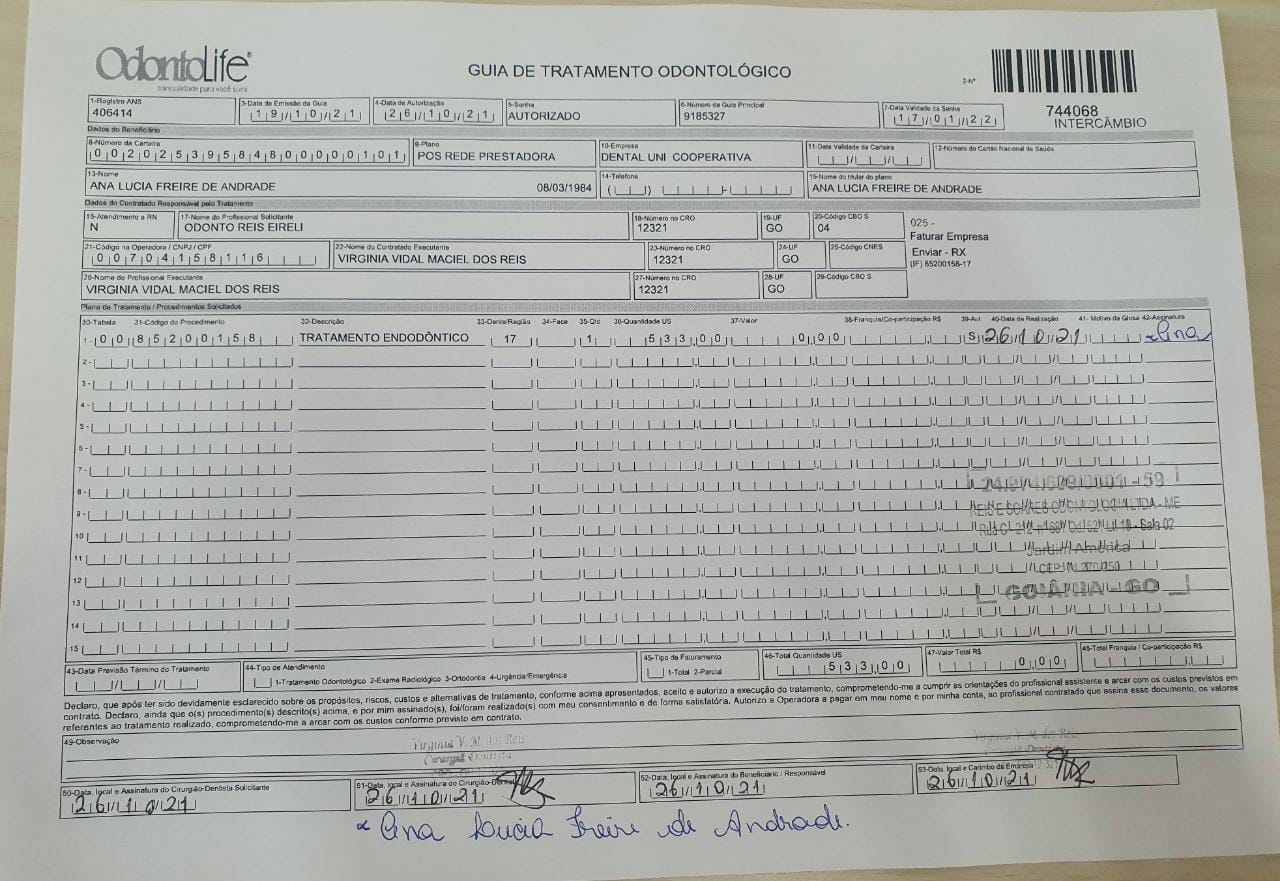 OdontoLife
tranquilidade para você sorrir
GUIA DE TRATAMENTO ODONTOLÓGICO
2-Nº
744068
INTERCÂMBIO
1-Registro ANS
406414
3-Data de Emissão da Guia
19/10/21
4-Data de Autorização
26/10/21
5-Senha
AUTORIZADO
6-Número da Guia Principal
9185327
7-Data Validade da Senha
17/01/22
Dados do Beneficiário
8-Número da Carteira
00202539584800000101
9-Plano
POS REDE PRESTADORA
10-Empresa
DENTAL UNI COOPERATIVA
11-Data Validade da Carteira
12-Número do Cartão Nacional de Saúde
13-Nome
ANA LUCIA FREIRE DE ANDRADE 08/03/1984
14-Telefone
15-Nome do titular do plano
ANA LUCIA FREIRE DE ANDRADE
Dados do Contratado Responsável pelo Tratamento
16-Atendimento a RN
N
17-Nome do Profissional Solicitante
ODONTO REIS EIRELI
18-Número no CRO
12321
19-UF
GO
20-Código CBO S
04
025 -
Faturar Empresa
Enviar - RX
(IF) 85200158-17
21-Código na Operadora / CNPJ / CPF
00704158116
22-Nome do Contratado Executante
VIRGINIA VIDAL MACIEL DOS REIS
23-Número no CRO
12321
24-UF
GO
25-Código CNES
26-Nome do Profissional Executante
VIRGINIA VIDAL MACIEL DOS REIS
27-Número no CRO
12321
28-UF
GO
29-Código CBO S
Plano de Tratamento / Procedimentos Solicitados
30-Tabela 31-Código do Procedimento 32-Descrição 33-Dente/Região 34-Face 35-Qtd 36-Quantidade US 37-Valor 38-Franquia/Co-participação R$ 39-Aut 40-Data de Realização 41- Motivo da Glosa 42-Assinatura
1- 00 85200158 TRATAMENTO ENDODÔNTICO 17 1 533,00 0,00 S 26/10/21 Ana
2-
3-
4-
5-
6-
7-
8-
9-
10
11
12
13
14
15
REIS E SOARES ODONTOLOGIA LTDA - ME
Sala 02
Jardim América
GOIÂNIA - GO
43-Data Previsão Término do Tratamento
44-Tipo de Atendimento
1-Tratamento Odontológico 2-Exame Radiológico 3-Ortodontia 4-Urgência/Emergência
45-Tipo de Faturamento
1-Total 2-Parcial
46-Total Quantidade US
533,00
47-Valor Total R$
0,00
48-Total Franquia / Co-participação R$
Declaro, que após ter sido devidamente esclarecido sobre os propósitos, riscos, custos e alternativas de tratamento, conforme acima apresentados, aceito e autorizo a execução do tratamento, comprometendo-me a cumprir as orientações do profissional assistente e arcar com os custos previstos em
contrato. Declaro, ainda que o(s) procedimento(s) descrito(s) acima, e por mim assinado(s), foi/foram realizado(s) com meu consentimento e de forma satisfatória. Autorizo a Operadora a pagar em meu nome e por minha conta, ao profissional contratado que assina esse documento, os valores
referentes ao tratamento realizado, comprometendo-me a arcar com os custos conforme previsto em contrato.
49-Observação
Virginia V. M. dos Reis
Cirurgiã Dentista
Virginia V. M. dos Reis
Cirurgiã Dentista
50-Data, local e Assinatura do Cirurgião-Dentista Solicitante
26/10/21
51-Data, local e Assinatura do Cirurgião-Dentista
26/10/21
52-Data, local e Assinatura do Beneficiário / Responsável
26/10/21
53-Data, local e Carimbo da Empresa
26/10/21
Ana Lucia Freire de Andrade.